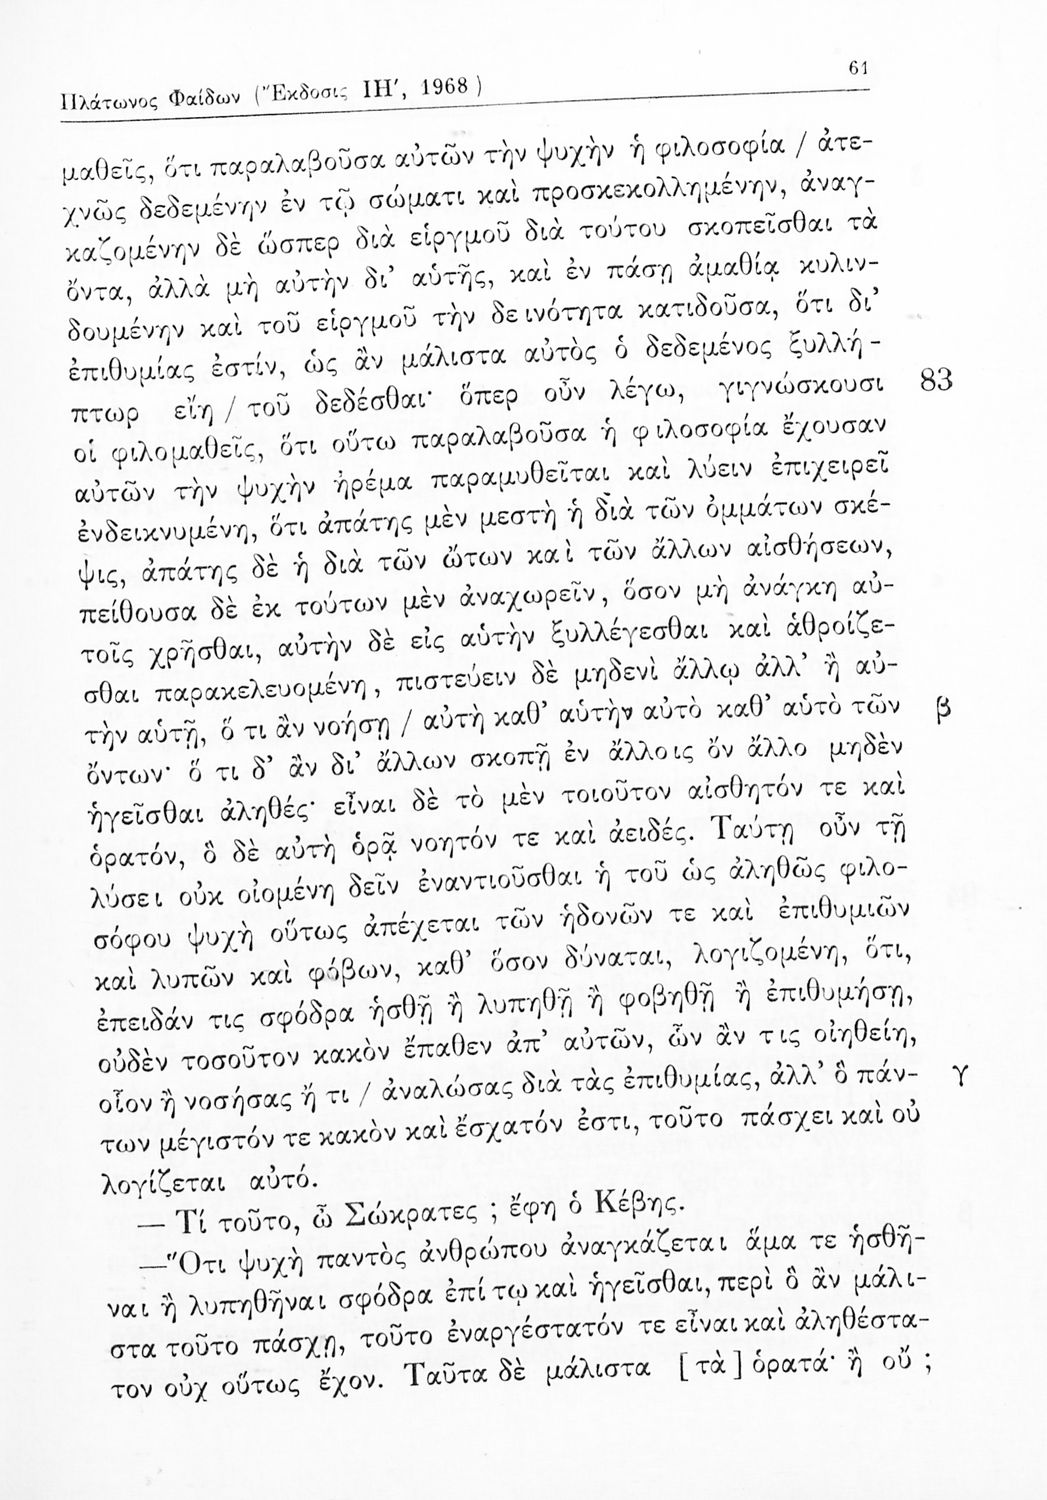 Πλάτωνος Φαίδων (Ἔκδοσις ΙΗ′, 1968)
61
μαθεῖς, ὅτι παραλαβοῦσα αὐτῶν τὴν ψυχὴν ἡ φιλοσοφία / ἀτε-
χνῶς δεδεμένην ἐν τῷ σώματι καὶ προσκεκολλημένην, ἀναγ-
καζομένην δὲ ὥσπερ διὰ εἱργμοῦ διὰ τούτου σκοπεῖσθαι τὰ
ὄντα, ἀλλὰ μὴ αὐτὴν δι’ αὑτῆς, καὶ ἐν πάσῃ ἀμαθίᾳ κυλιν-
δουμένην καὶ τοῦ εἱργμοῦ τὴν δεινότητα κατιδοῦσα, ὅτι δι’
ἐπιθυμίας ἐστίν, ὡς ἂν μάλιστα αὐτὸς ὁ δεδεμένος ξυλλή-
πτωρ εἴη / τοῦ δεδέσθαι· ὅπερ οὖν λέγω, γιγνώσκουσι 83
οἱ φιλομαθεῖς, ὅτι οὕτω παραλαβοῦσα ἡ φιλοσοφία ἔχουσαν
αὐτῶν τὴν ψυχὴν ἠρέμα παραμυθεῖται καὶ λύειν ἐπιχειρεῖ
ἐνδεικνυμένη, ὅτι ἀπάτης μὲν μεστὴ ἡ διὰ τῶν ὀμμάτων σκέ-
ψις, ἀπάτης δὲ ἡ διὰ τῶν ὤτων καὶ τῶν ἄλλων αἰσθήσεων,
πείθουσα δὲ ἐκ τούτων μὲν ἀναχωρεῖν, ὅσον μὴ ἀνάγκη αὐ-
τοῖς χρῆσθαι, αὐτὴν δὲ εἰς αὑτὴν ξυλλέγεσθαι καὶ ἁθροίζε-
σθαι παρακελευομένη, πιστεύειν δὲ μηδενὶ ἄλλῳ ἀλλ’ ἢ αὐ-
τὴν αὑτῇ, ὅ τι ἂν νοήσῃ / αὐτὴ καθ’ αὑτὴν αὐτὸ καθ’ αὑτὸ τῶν β
ὄντων· ὅ τι δ’ ἂν δι’ ἄλλων σκοπῇ ἐν ἄλλοις ὂν ἄλλο μηδὲν
ἡγεῖσθαι ἀληθές· εἶναι δὲ τὸ μὲν τοιοῦτον αἰσθητόν τε καὶ
ὁρατόν, ὃ δὲ αὐτὴ ὁρᾷ νοητόν τε καὶ ἀειδές. Ταύτῃ οὖν τῇ
λύσει οὐκ οἰομένη δεῖν ἐναντιοῦσθαι ἡ τοῦ ὡς ἀληθῶς φιλο-
σόφου ψυχὴ οὕτως ἀπέχεται τῶν ἡδονῶν τε καὶ ἐπιθυμιῶν
καὶ λυπῶν καὶ φόβων, καθ’ ὅσον δύναται, λογιζομένη, ὅτι,
ἐπειδάν τις σφόδρα ἡσθῇ ἢ λυπηθῇ ἢ φοβηθῇ ἢ ἐπιθυμήσῃ,
οὐδὲν τοσοῦτον κακὸν ἔπαθεν ἀπ’ αὐτῶν, ὧν ἄν τις οἰηθείη,
οἷον ἢ νοσήσας ἤ τι / ἀναλώσας διὰ τὰς ἐπιθυμίας, ἀλλ’ ὃ πάν- γ
των μέγιστόν τε κακὸν καὶ ἔσχατόν ἐστι, τοῦτο πάσχει καὶ οὐ
λογίζεται αὐτό.
— Τί τοῦτο, ὦ Σώκρατες ; ἔφη ὁ Κέβης.
—Ὅτι ψυχὴ παντὸς ἀνθρώπου ἀναγκάζεται ἅμα τε ἡσθῆ-
ναι ἢ λυπηθῆναι σφόδρα ἐπί τῳ καὶ ἡγεῖσθαι, περὶ ὃ ἂν μάλι-
στα τοῦτο πάσχῃ, τοῦτο ἐναργέστατόν τε εἶναι καὶ ἀληθέστα-
τον οὐχ οὕτως ἔχον. Ταῦτα δὲ μάλιστα [τὰ] ὁρατά· ἢ οὔ ;